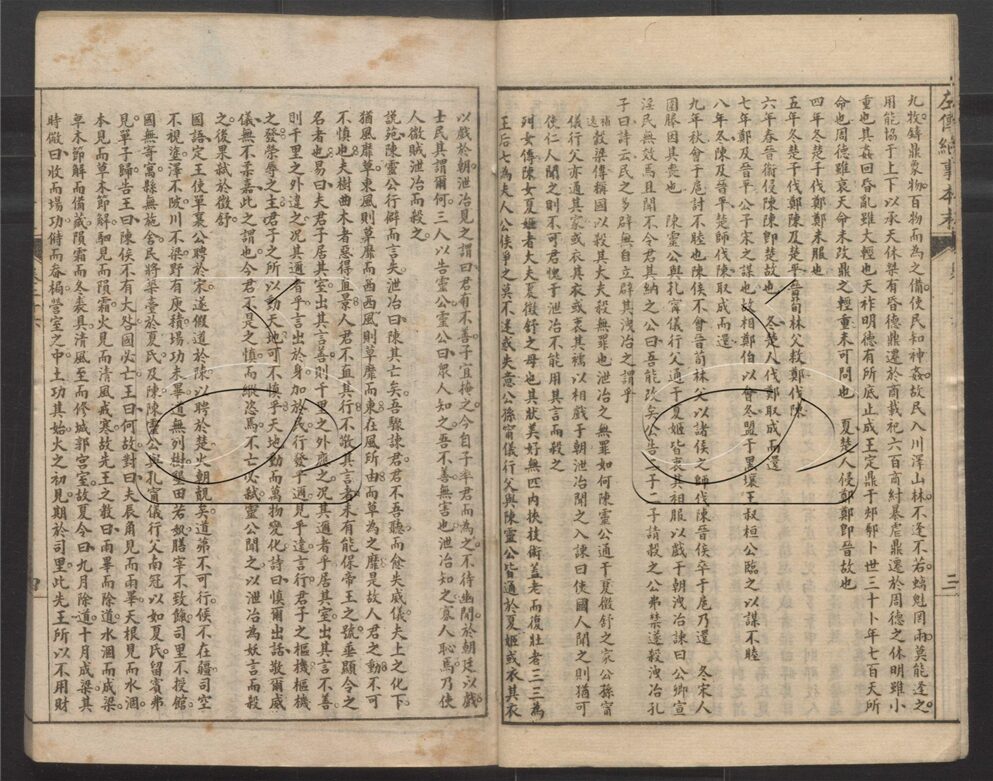 左傳紀事本末
三
九牧鑄鼎象物百物而為之備使民知神姦故民入川澤山林不逢不若螭魅罔兩莫能逢之
用能協于上下以承天休桀有昏德鼎遷於商載祀六百商紂暴虐鼎遷於周德之休明雖小
重也其姦回昏亂雖大輕也天祚明德有所底止成王定鼎于郟鄏卜世三十卜年七百天所
命也周德雖衰天命未改鼎之輕重未可問也 夏楚人侵鄭鄭即晉故也
四年冬楚子伐鄭鄭未服也
五年冬楚子伐鄭陳及楚平晉荀林父救鄭伐陳
六年春晉衛侵陳陳即楚故也 冬楚人伐鄭取成而還
七年鄭及晉平公子宋之謀也故相鄭伯以會冬盟于黑壤王叔桓公臨之以謀不睦
八年冬陳及晉平楚師伐陳取成而還
九年秋會于扈討不睦也陳侯不會晉荀林父以諸侯之師伐陳晉侯卒于扈乃還 冬宋人
圍滕因其喪也 陳靈公與孔寧儀行父通于夏姬皆衷其衵服以戲于朝洩冶諫曰公卿宣
淫民無效焉且聞不令君其納之公曰吾能改矣公告二子二子請殺之公弗禁遂殺洩冶孔
子曰詩云民之多辟無自立辟其洩冶之謂乎
補逸穀梁傳稱國以殺其大夫殺無罪也泄冶之無罪如何陳靈公通于夏徵舒之家公孫甯
儀行父亦通其家或衣其衣或衷其襦以相戲于朝泄冶聞之入諫曰使國人聞之則猶可
使仁人聞之則不可君愧于泄冶不能用其言而殺之
列女傳陳女夏姬者大夫夏徵舒之母也其狀美好無匹內挾技術蓋老而復壯者三三為
王后七為夫人公侯爭之莫不迷或失意公孫甯儀行父與陳靈公皆通於夏姬或衣其衣
以戲於朝泄冶見之謂曰君有不善子宜掩之今自子率君而為之不待幽閒於朝廷以戲
士民其謂爾何三人以告靈公靈公曰眾人知之吾不善無害也泄冶知之寡人恥焉乃使
人徵賊泄冶而殺之
說苑陳靈公行僻而言失泄冶曰陳其亡矣吾驟諫君君不吾聽而愈失威儀夫上之化下
猶風靡草東風則草靡而西西風則草靡而東在風所由而草為之靡是故人君之動不可
不慎也夫樹曲木者惡得直景人君不直其行不敬其言者未有能保帝王之號垂顯令之
名者也易曰夫君子居其室出其言善則千里之外應之況其邇者乎居其室出其言不善
則千里之外違之況其邇者乎言出於身加於民行發乎邇見乎遠言行君子之樞機樞機
之發榮辱之主君子之所以動天地可不慎乎天地動而萬物變化詩曰慎爾出話敬爾威
儀無不柔嘉此之謂也今君不是之慎而縱恣焉不亡必弒靈公聞之以泄冶為妖言而殺
之後果弒於徵舒
國語定王使單襄公聘於宋遂假道於陳以聘於楚火朝覿矣道茀不可行候不在疆司空
不視塗澤不陂川不梁野有庾積場功未畢道無列樹墾田若蓺膳宰不致餼司里不授館
國無寄寓縣無施舍民將築臺於夏氏及陳陳靈公與孔甯儀行父南冠以如夏氏留賓弗
見單子歸告王曰陳侯不有大咎國必亡王曰何故對曰夫辰角見而雨畢天根見而水涸
本見而草木節解駟見而隕霜火見而清風戒寒故先王之教曰雨畢而除道水涸而成梁
草木節解而備藏隕霜而冬裘具清風至而修城郭宮室故夏令曰九月除道十月成梁其
時儆曰收而場功偫而畚梮營室之中土功其始火之初見期於司里此先王所以不用財